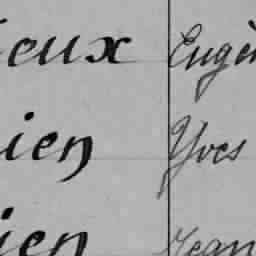 ieux Eugèn
ien Yves
ien Jean